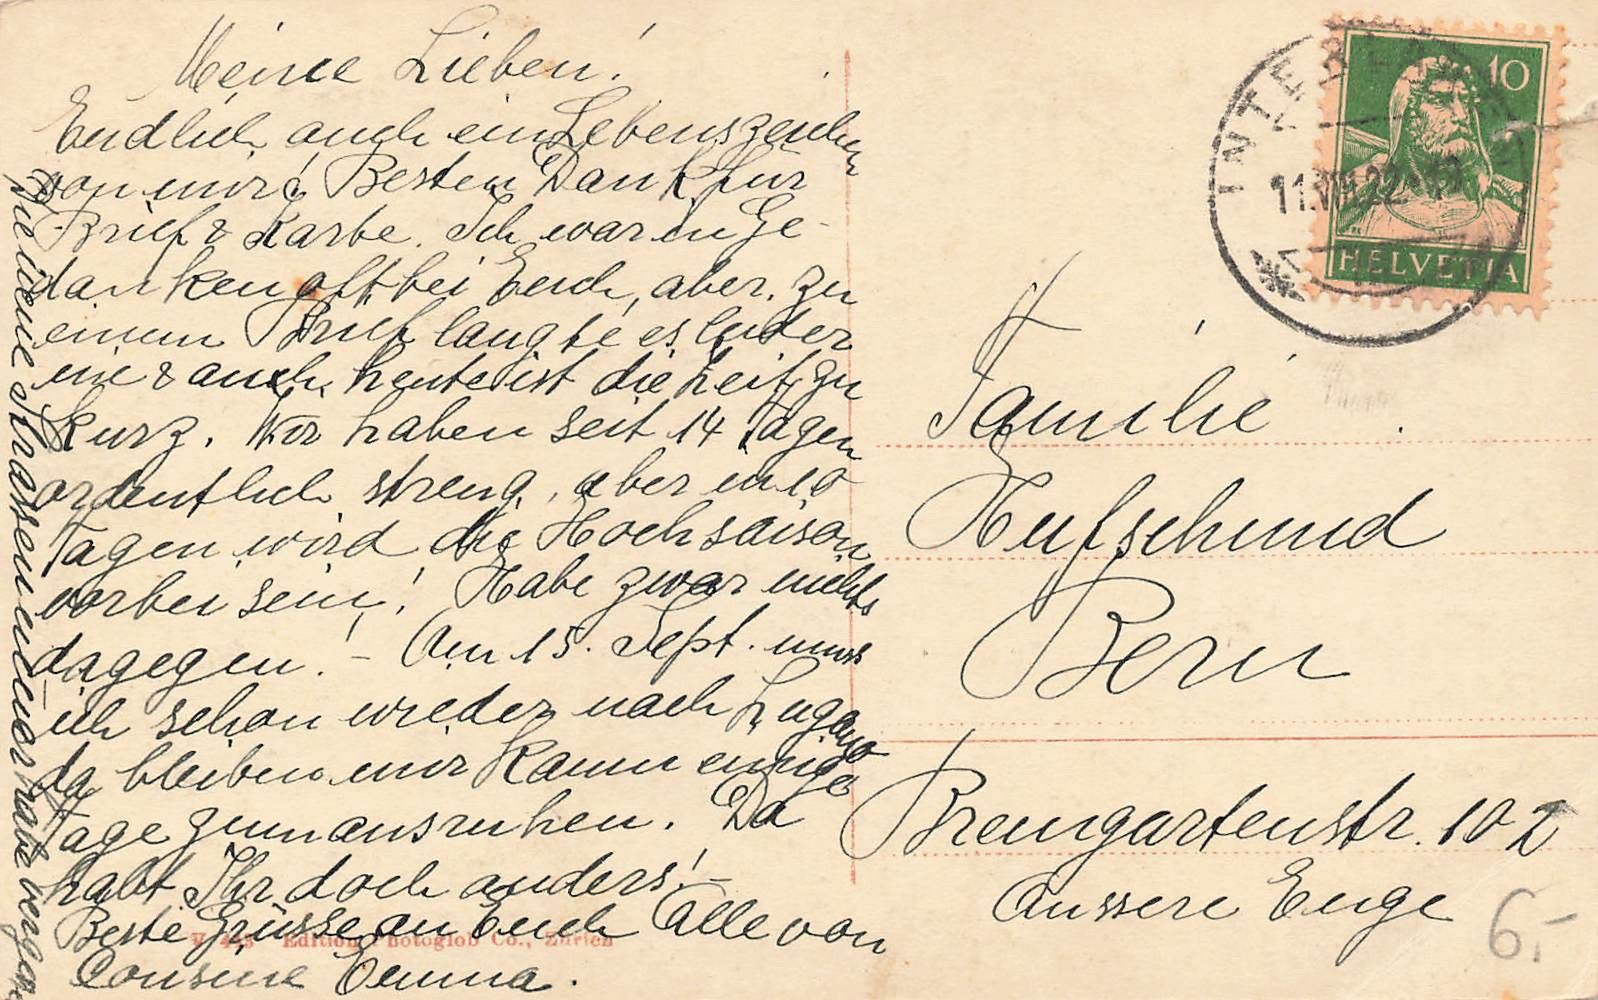 Meine Lieben!
Endlich auch ein Lebenszeichen
von mir! Besten Dank für
Brief & Karte. Ich war in Ge-
danken oft bei Euch, aber zu
einem Brief langte es leider
nie & auch heute ist die Zeit zu
kurz. Wir haben seit 14 Tagen
ordentlich streng, aber in 10
Tagen wird die Hochsaison
vorbei sein! Habe zwar nichts
dagegen! - Am 15. Sept. muss
ich schon wieder nach Lugano
da bleiben mir kaum einige
Tage zum ausruhen. Da
habt Ihr doch anders! -
Beste Grüsse an Euch Alle von
Cousine Emma.
Strassennummer habe
INTERLAKEN
11.VIII.22
10
HELVETIA
Familie
Hufschmid
Bern
Bremgartenstr. 102
Aussere Enge
6.-
Edition Photoglob Co., Zürich